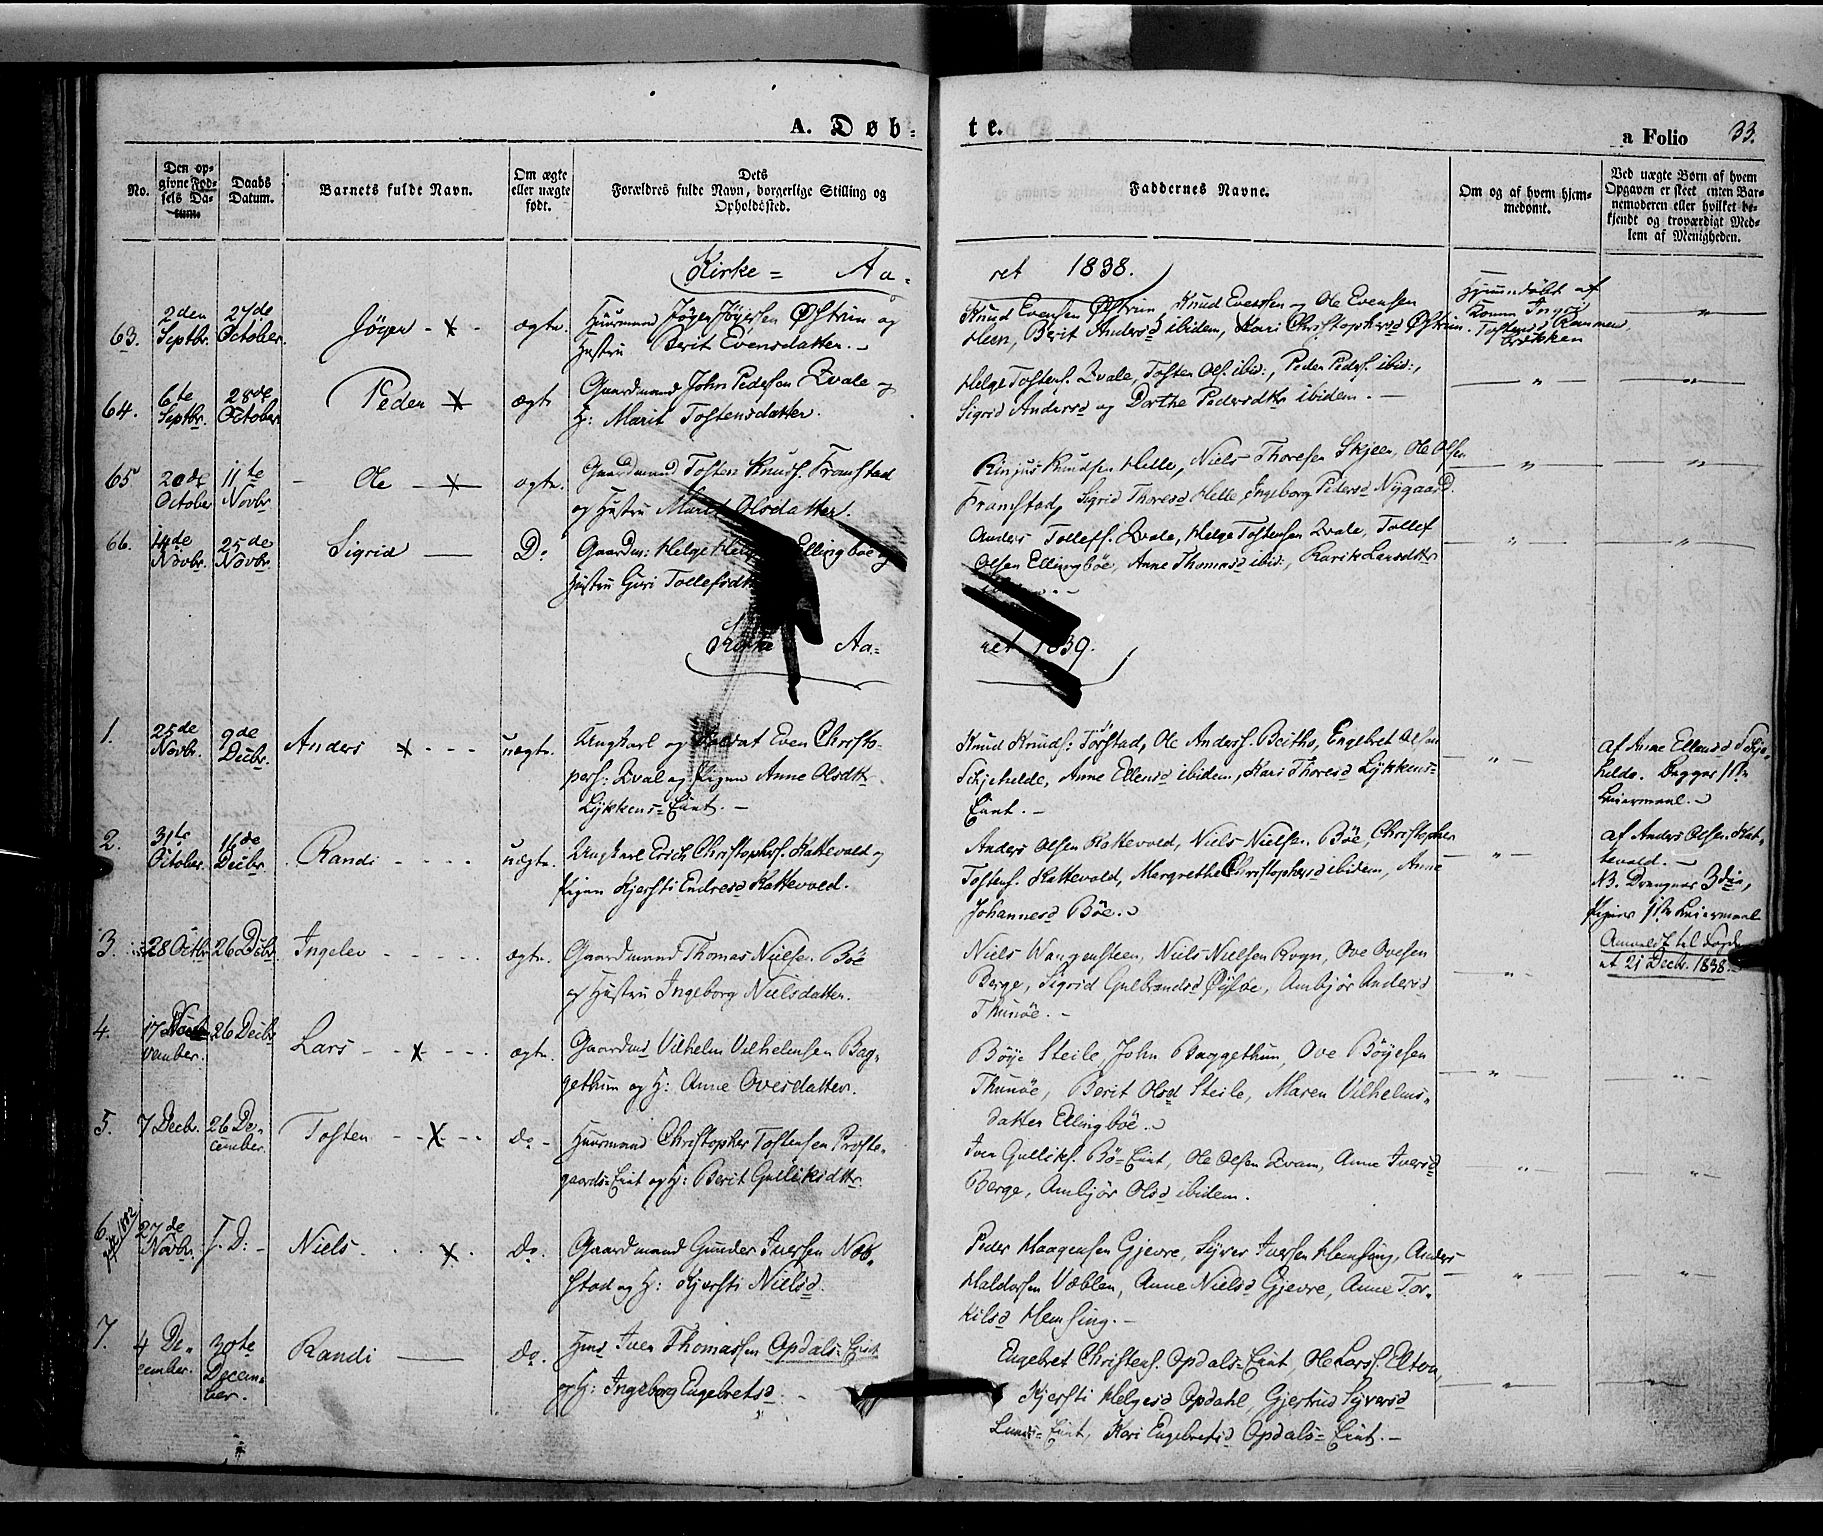 A. Døb-te.
a Folio 33.
No.
Den op-
givne Fød-
sels Da-
tum.
Daabs
Datum.
Barnets fulde Navn.
Om ægte
eller uægte
født.
Dets
Forældres fulde Navn, borgerlige Stilling og
Opholdssted.
Faddernes Navne.
Om og af hvem hjem-
medømt.
Ved uægte Børn af hvem
Opgaven er skeet enten Bar-
nemoderen eller hvilket be-
kjendt og troværdigt Med-
lem af Menigheden.
Kirke= Aa-
ret 1838.
63.
2den
Septbr.
27de
October.
Jögen
ægte.
Huusmand Jögen Jögensen Østrin og
Hustru Berit Evensdatter.-
Knud Evensen Østrin, Knud Evensen og Ole Evensen
Heen, Berit Andersd ibidem, Kari Christophersd Østrin.
Hjemmedøbt af
Tostend
brækken
64.
6te
Septbr.
28de
October
Peder
ægte
Gaardmand John Pedersen Qvale og
H: Marit Tostensdatter.
Helge Tostens. Qvale, Tosten Ols. ibid:, Peder Peders. ibid:,
Sigrid Andersd og Dorthe Pedersdtr ibidem.-
65
20de
October
11te
Novbr
Ole
ægte.
Gaardmand Tosten Knuds. Framstad
og Hustru Marit Olsdatter.
Knudsen Helle, Niels Thoresen Skjeen, Ole Olsen
Framstad, Sigrid Thoresd Helle, Ingeborg Pedersd Nygaard.
66.
14de
Novbr.
25de
Novbr.
Sigrid
Do
Gaardm: Helge Ellingböe og
Hustru Guri Tollefsdtr
Anders Tollefs. Qvale, Helge Tostensen Qvale, Tollef
Olsen Ellingböe, Anne Thomasd ibid:, Larsdtr
Kirke Aa-
ret 1839.
1.
25de
Novbr.
9de
Decbr.
Anders
uægte.
Ungkarl og Even Christo-
phers: Qval og Pigen Anne Olsdtr.
Lykkens=Eint.-
Knud Knuds: Törstad, Ole Anders. Beitho, Engebret Olsen
Schjehelde, Anne Ellensd ibidem, Kari Thoresd Lykkens=
Eint.-
af Anne Ellensd Schje-
helde. Begges 1ste
Leiermaal.
2.
31te
October.
16de
Decbr.
Randi
uægte.
Ungkarl Erich Christophers. Kattevold og
Pigen Kjersti Endresd Kattevold.
Anders Olsen Kattevold, Niels Nielsen Böe, Christopher
Tostens. Kattevold, Margrethe Christophersd ibidem, Anne
Johannesd Böe.
af Anders Olsen Kat-
tevold.-
NB. Drengens 3die,
Pigens 1ste Leiermaal
Anmeldt til
at 21 Decbr. 1838.
3.
28 Octbr.
26 Decbr.
Ingelev
ægte.
Gaardmand Thomas Nielsen Böe
og Hustru Ingeborg Nielsdatter.
Niels Wangensteen, Niels Nielsen Rogn, Ove Ovesen
Berge, Sigrid Gulbrandsd Öyloe, Ambjör Andersd
Thunöe.-
4.
17
vember.
26 Decbr
Lars
ægte.
Gaardmd Vilhelm Vilhelmsen Bag-
gethun og H: Anne Ovesdatter.
Böye Steile, John Baggethun, Ove Böyesen
Thunöe, Berit Olsd Steile, Maren Vilhelms-
datter Ellingböe.
5.
7 Decbr.
26 De-
cember.
Tosten
Do-
Huusmand Christopher Tostensen Præste-
gaards=Eint og H: Berit Gulliksdtr.
Iver Gulliks. Bö=Eint, Ole Olsen Qvam, Anne Iversd
Berge, Ambjör Olsd ibidem.
6.
27de
Novbr.
f. D:
Niels
Do.
Gaardmand Gunder Iversen Næb-
stad og H: Kjersti Nielsd.
Peder Haagensen Gjevre, Syver Iversen Hemsing, Anders
Haldorsen Væblen, Anne Nielsd Gjevre, Anne Tor-
kilsd Hemsing.-
7.
4 De-
cember.
30te
Decem-
ber.
Randi
Do.
Hmd Iver Thomassen Opdals=Eint
og H: Ingeborg Engebretsd.
Engebret Christens. Opdals=Eint, Ole Lars. Elton,
Kjersti Helgesd Opdahl, Gjertrud Syversd
Lunds=Eint, Kari Engebretsd Opdals=Eint.-